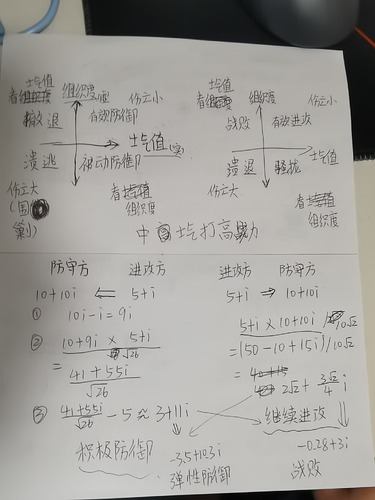 士气值 组织度 伤亡小
撤退 有效防御
士气值(实)
溃逃 被动防御
伤亡大
组织度
士气值 组织度 伤亡小
战败 有效进攻
士气值
溃退 骚扰
伤亡大
组织度
中 士气打高
防守方 进攻方
10+10i ⇐ 5+i
① 10i-i=9i
② 10+9i × 5+i
√26
= 41+55i
√26
③ 41+55i
√26
-5≈3+11i
积极防御
-3.5+10.3i
弹性防御
进攻方 防守方
5+i ⇒ 10+10i
5+i × 10+10i
/10√2
=(50-10+15i)/10√2
= 2√2 + 3√2
4
i
继续进攻
-0.28+3i
战败